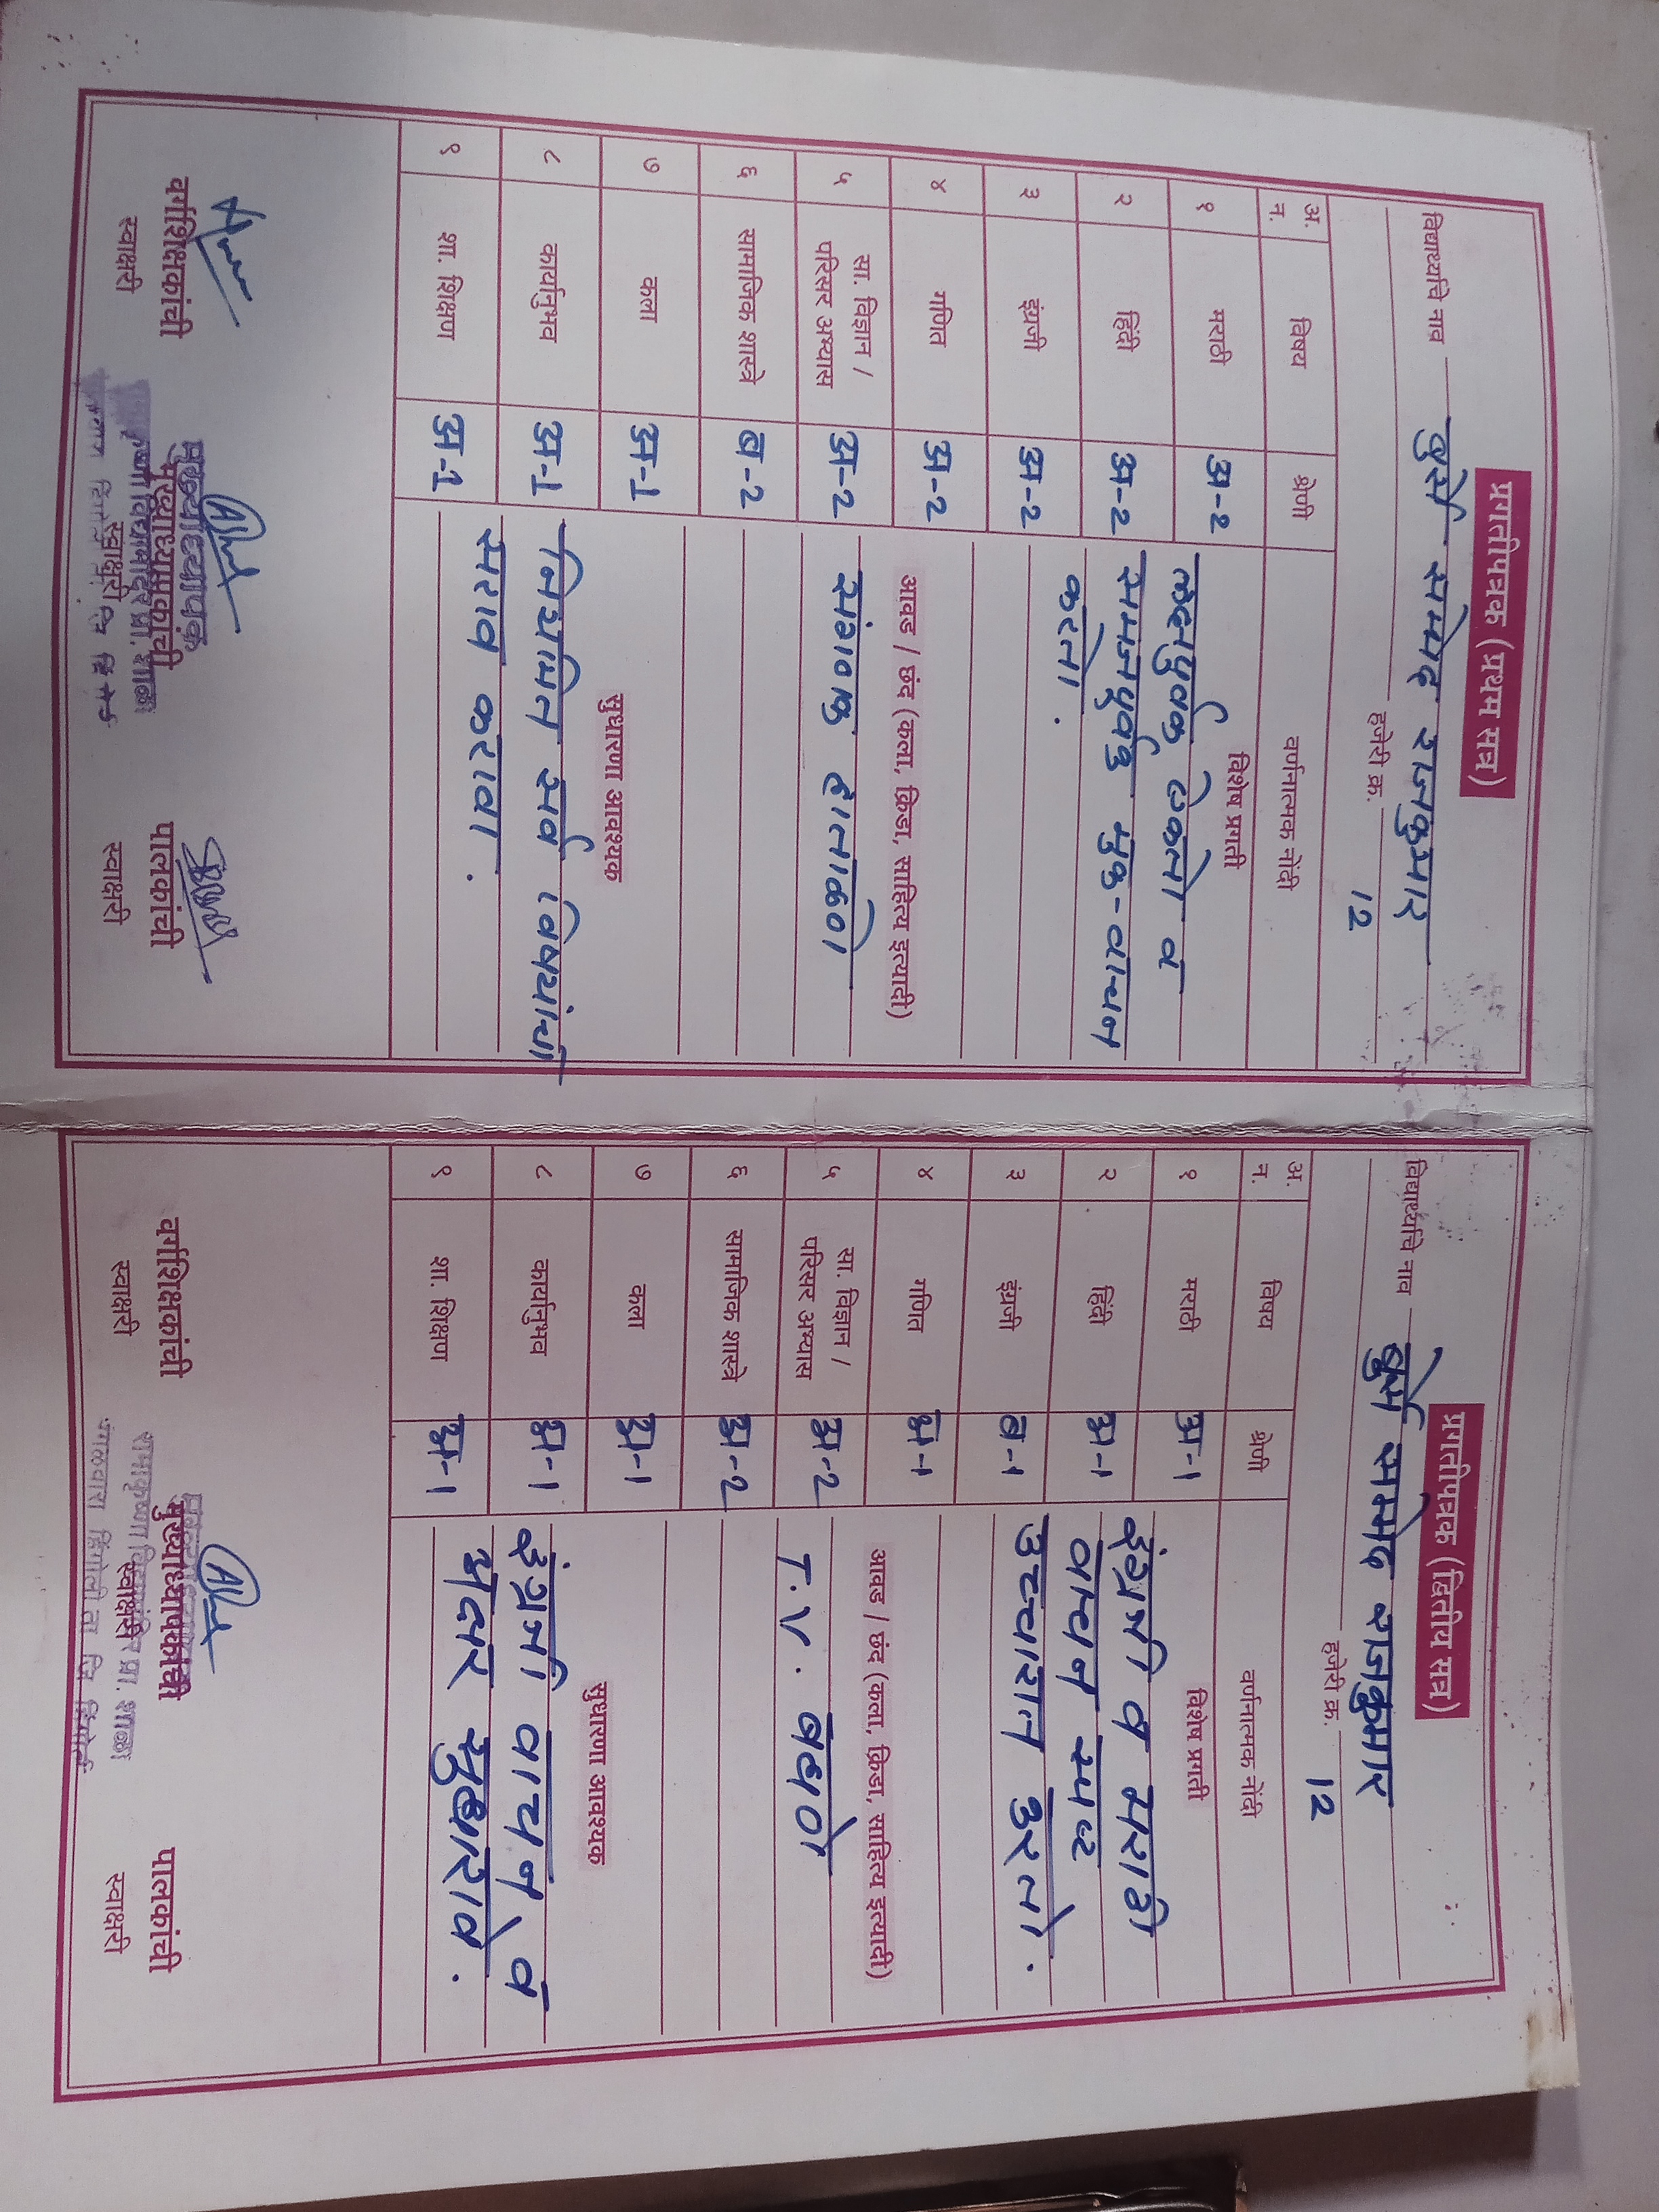 प्रगतीपत्रक (प्रथम सत्र)
विद्यार्थ्याचे नाव सम्मेद राजकुमार
हजेरी क्र. 12
अ.न. विषय श्रेणी वर्णनात्मक नोंदी
विशेष प्रगती
१ मराठी अ-2
२ हिंदी अ-2
३ इंग्रजी अ-2
४ गणित अ-2
५ सा. विज्ञान / परिसर अभ्यास अ-2
६ सामाजिक शास्त्रे ब-2
७ कला अ-1
८ कार्यानुभव अ-1
९ शा. शिक्षण अ-1
लक्षपुर्वक ऐकतो व
समजपुर्वक मुक-वाचन
करतो.
आवड / छंद (कला, क्रिडा, साहित्य इत्यादी)
संगणक हाताळतो
सुधारणा आवश्यक
नियमित सर्व विषयांचा
सराव करावा.
वर्गशिक्षकांची स्वाक्षरी
मुख्याध्यापकांची स्वाक्षरी
पालकांची स्वाक्षरी
प्रगतीपत्रक (द्वितीय सत्र)
विद्यार्थ्याचे नाव सम्मेद राजकुमार
हजेरी क्र. 12
अ.न. विषय श्रेणी वर्णनात्मक नोंदी
विशेष प्रगती
१ मराठी अ-1
२ हिंदी अ-1
३ इंग्रजी ब-1
४ गणित अ-1
५ सा. विज्ञान / परिसर अभ्यास अ-2
६ सामाजिक शास्त्रे अ-2
७ कला अ-1
८ कार्यानुभव अ-1
९ शा. शिक्षण अ-1
इंग्रजी व मराठी
वाचन स्पष्ट
उच्चारात करतो.
आवड / छंद (कला, क्रिडा, साहित्य इत्यादी)
T.V. बघणे
सुधारणा आवश्यक
इंग्रजी वाचन व
अक्षर सुधारावे.
वर्गशिक्षकांची स्वाक्षरी
मुख्याध्यापकांची स्वाक्षरी
रामकृष्णा विद्यामंदिर प्रा. शाळा
मंगळवारा हिंगोली ता जि हिंगोली
पालकांची स्वाक्षरी